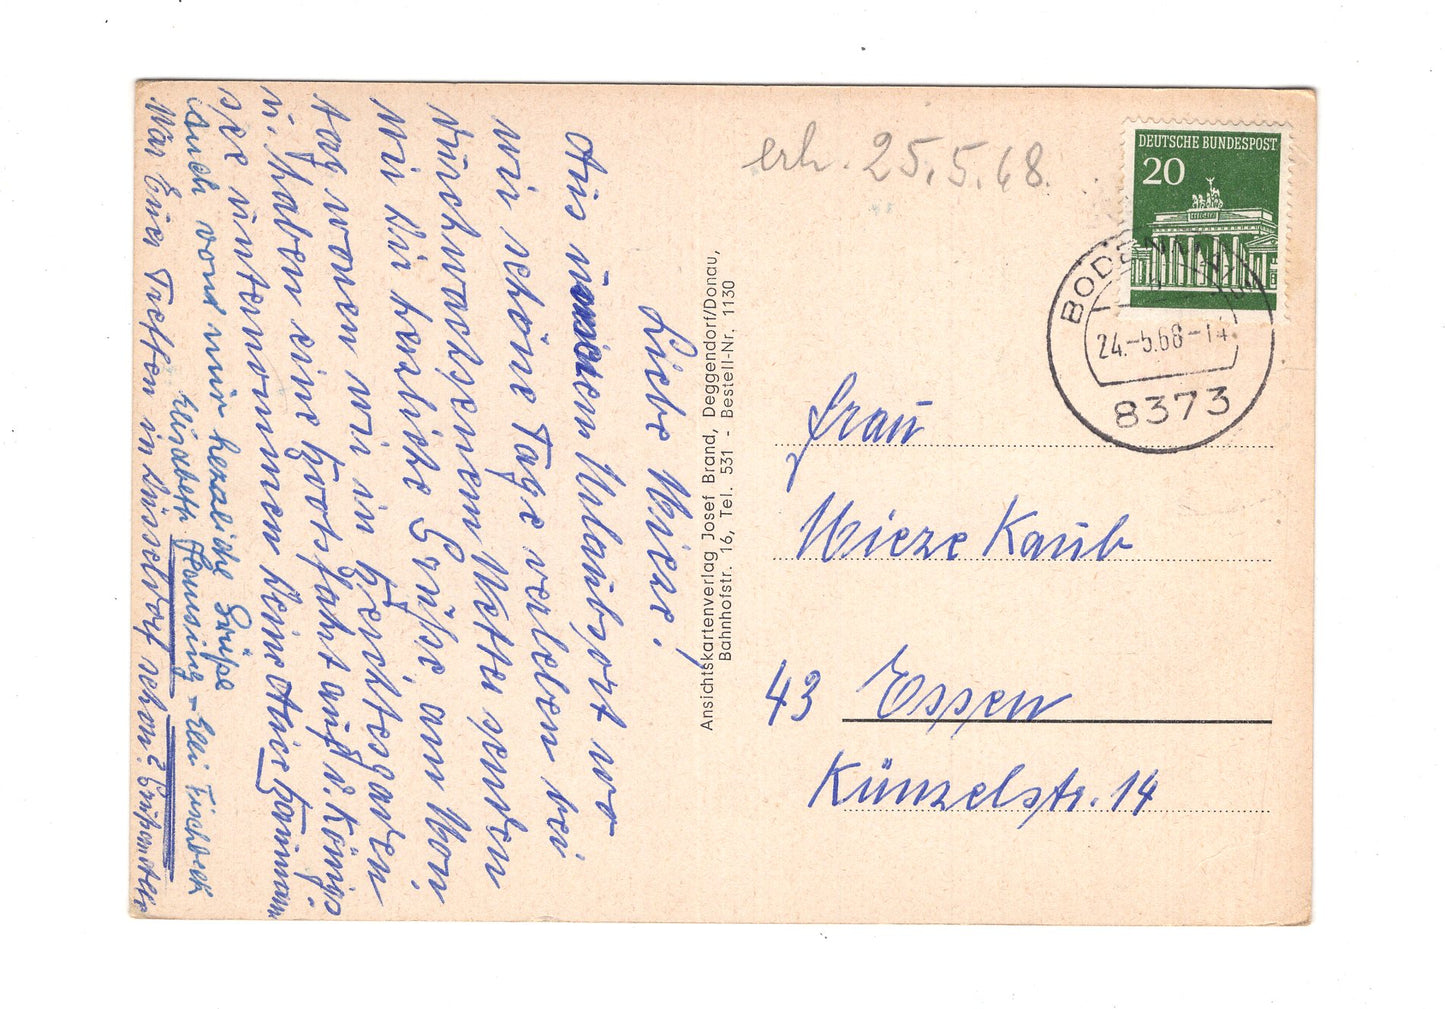 Liebe Mieze!
Aus unserem Urlaubsort wo
wir schöne Tage verleben bei
durchwachsenem Wetter senden
wir Dir herzliche Grüße am Mon-
tag waren wir in Berchtesgaden
u. haben eine Bootsfahrt auf d. Königs-
see unternommen Deine
auch von mir herzliche Grüße
Elisabeth - Elli Fischbeck
War Euer Treffen in Düsseldorf schon?
Ansichtskartenverlag Josef Brand, Deggendorf/Donau,
Bahnhofstr. 16, Tel. 531 - Bestell-Nr. 1130
erh. 25.5.68.
DEUTSCHE BUNDESPOST
20
24.-5.68-14
8373
Frau
Mieze Kaub
43 Essen
Künzelstr. 14